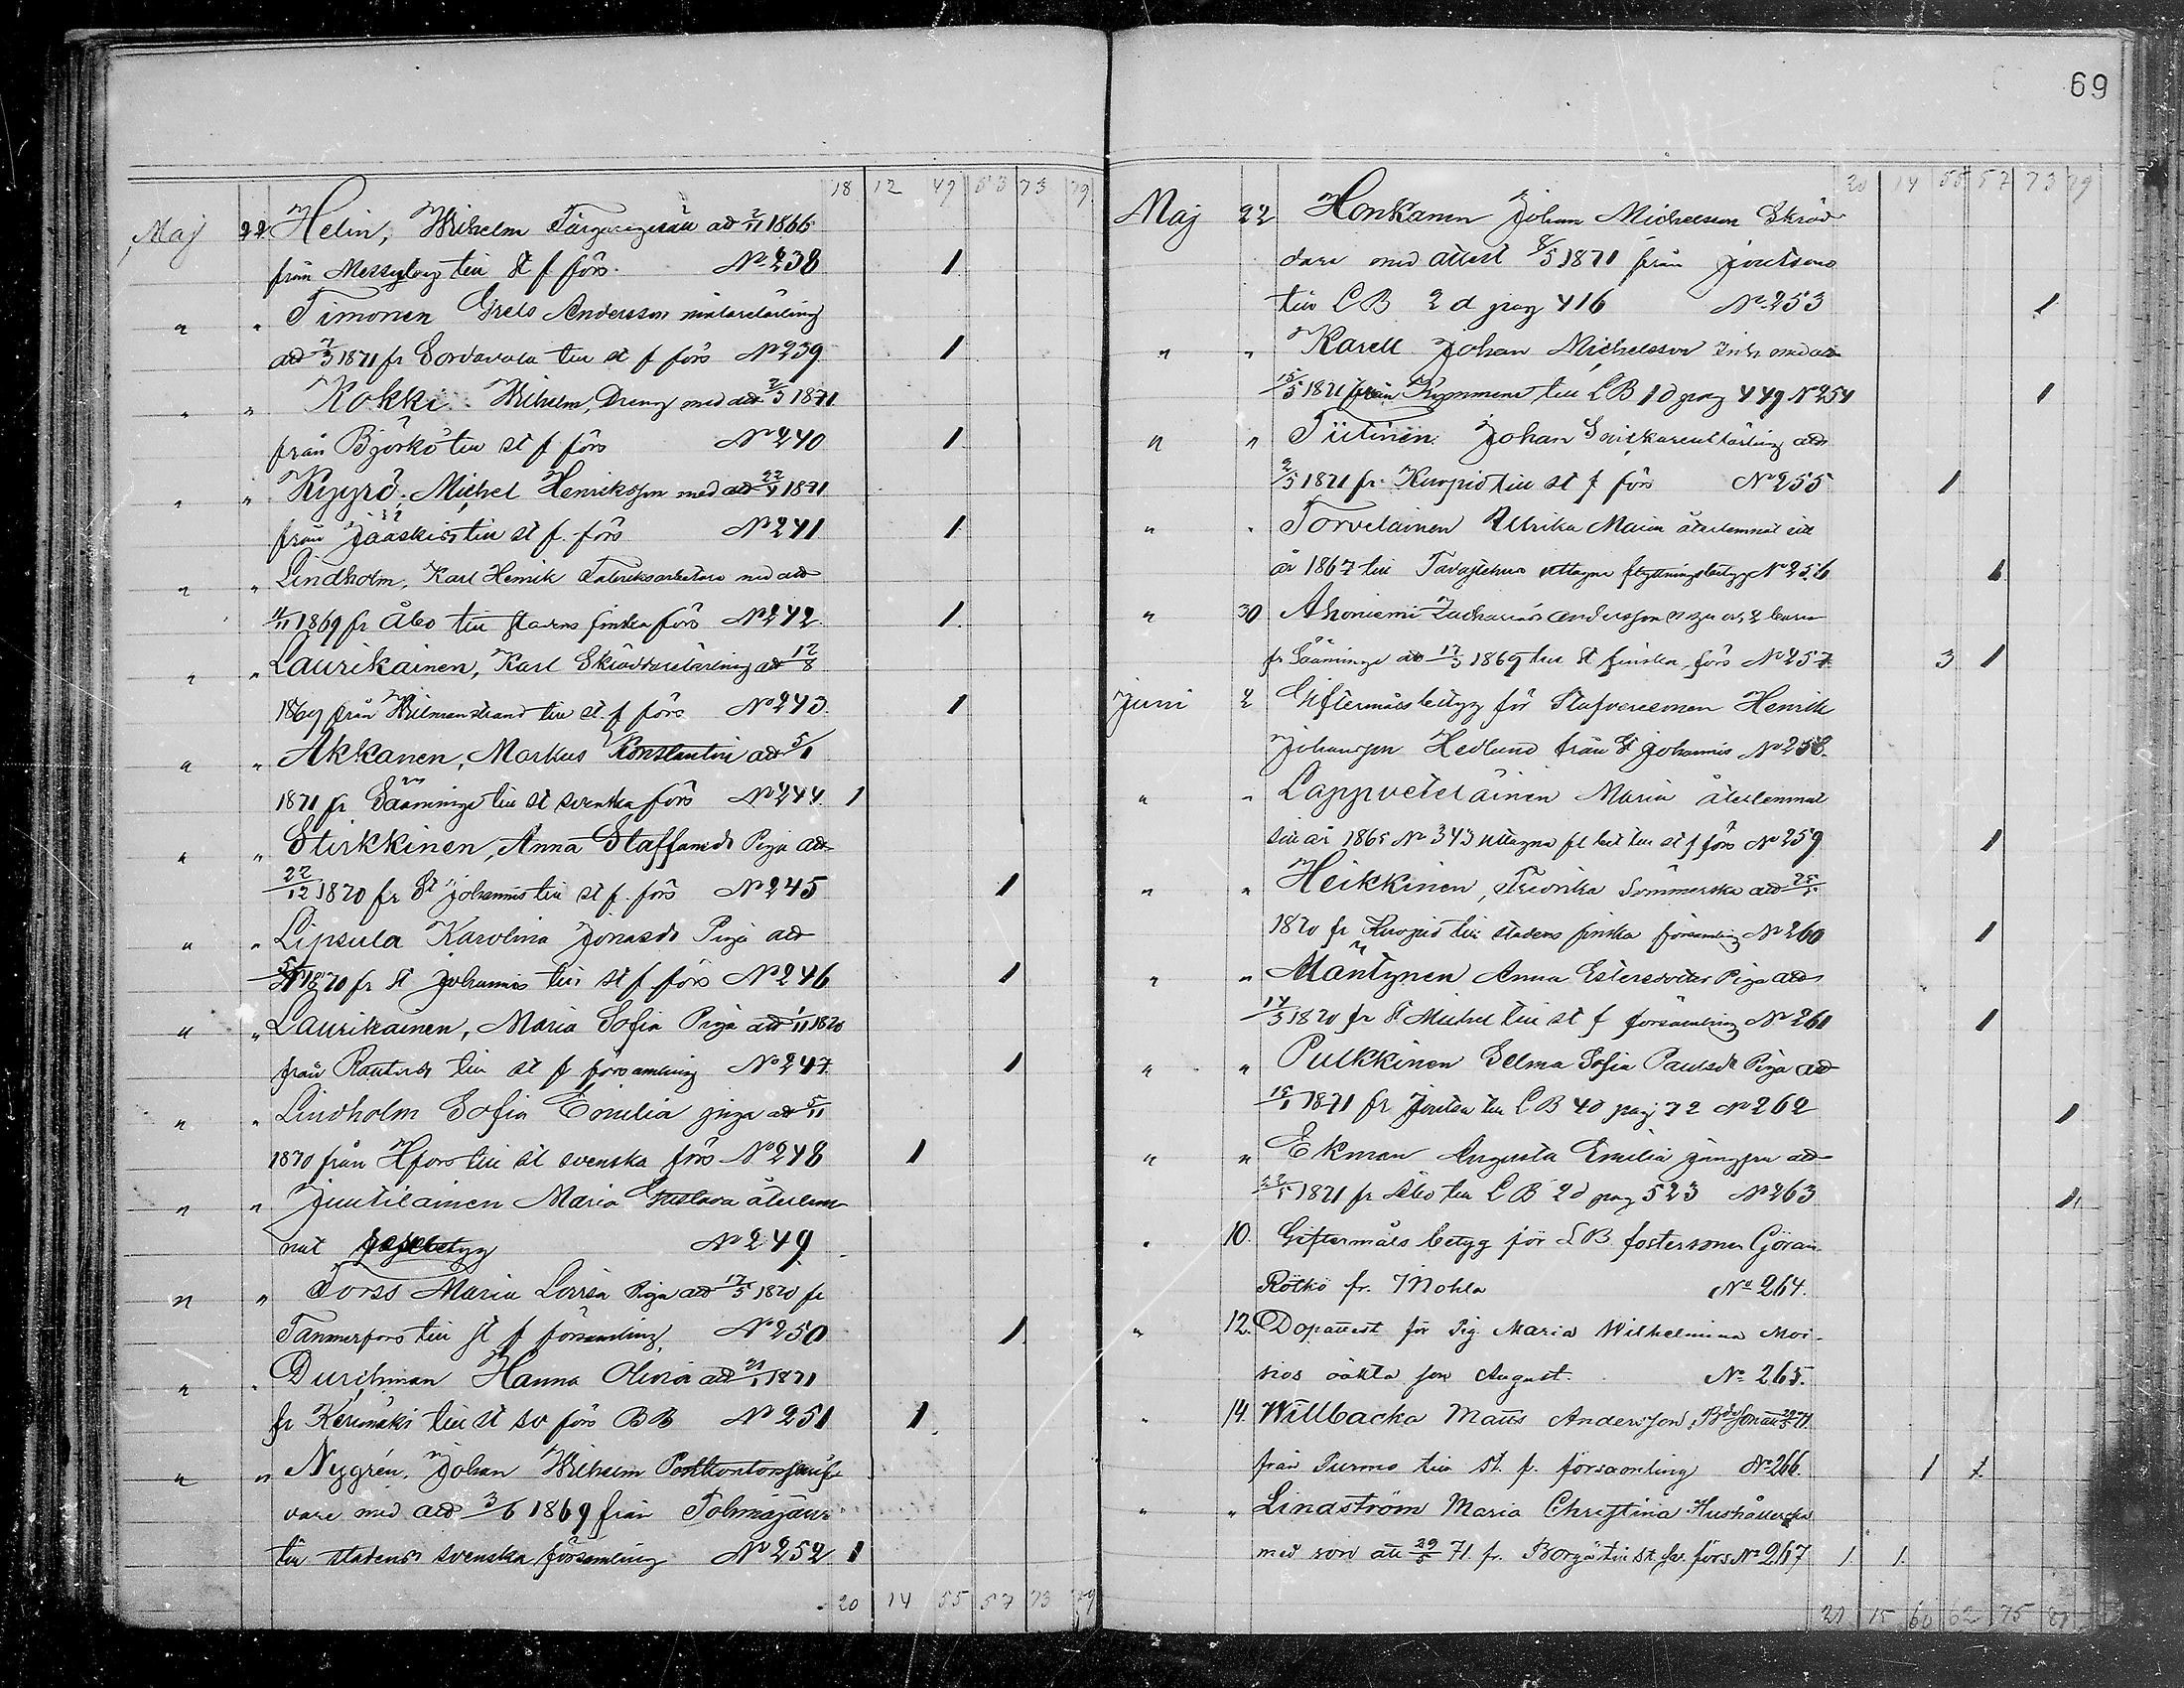 18 12 49 53 73 79
Maj 22 Helin, Wilhelm Färgaregesäll att 2/11 1866
från Messuby till St f förs. No 238 1
" " Timonen Grels Andersson målarelärling
att 7/3 1871 fr Sordavala till st f förs No 239 1
" " Kokki Wilhelm, Dreng med att 2/3 1871
från Björkö till st f förs No 240 1
" " Kyyrö, Michel Henriksson med att 22/4 1871
från Jääskis till st f. förs No 241 1
" " Lindholm, Karl Henrik Fabriksarbetare med att
11/11 1869 fr Åbo till stadens finska förs No 242 1
" " Laurikainen, Karl Skräddarelärling att 12/8
1869 från Wilmanstrand till st. f förs No 243 1
" " Akkanen, Markus Konstantin att 5/1
1871 fr Sääminge till st svenska förs No 244 1
" " Stirkkinen, Anna Staffansdr Piga att
22/12 1870 fr St Johannis till st f. förs No 245 1
" " Lipsula Karolina Jonasdr Piga att
1870 fr St Johannis till st f förs No 246 1
" " Laurikainen, Maria Sofia Piga att 1/11 1870
från Rautus till st f församling No 247 1
" " Lindholm Sofia Emilia piga att 5/11
1870 från Hfors till st svenska förs No 248 1
" " Juutilainen Maria Gustava återlem
nat betyg No 249
" " Torss Maria Lovisa Piga att 17/5 1870 fr
Tammerfors till st f församling No 250 1
" " Durchman Hanna Olivia att 21/1 1871
fr Kerimäki till st sv förs BB No 251 1
" " Nygrén, Johan Wilhelm Postkontorsskrif
vare med att 3/6 1869 från Tohmajärvi
till stadens svenska församling No 252 1
20 14 55 57 73 79
69
20 14 55 57 73 79
Maj 22 Honkanen Johan Michelsson Skräd
dare med attest 8/5 1871 från Joutseno
till LB 2 d pag 416 No 253 1
" " Karell Johan Michelsson Inh med att
15/5 1871 från Kymmene till LB 1 d pag 449 No 254 1
" " Tiitinen Johan Snickarelärling att
2/5 1871 fr. Kuopio till st f förs No 255 1
" " Torvelainen Ulrika Maria återlemnat sitt
år 1867 till Tavastehus uttagne flyttningsbetyg No 256 1
" 30 Ahoniemi Zacharias Andersson
fr Sääminge att 17/3 1869 till St finska förs No 257 3 1
Juni 2 Giftermålsbetyg för Stafveresmen Henrik
Johansson Hedlund från St Johannis No 258.
" " Lappveteläinen Maria återlemnat
sitt år 1865 No 343 uttagne fl bet till st f förs No 259 1
" " Heikkinen, Fredrika Sömmerska att 25/5
1870 fr Kuopio till stadens finska församling No 260 1
" " Mäntynen Anna Estersdotter Piga att
14/3 1870 fr St Michel till st f församling No 261 1
" " Pulkkinen Selma Sofia Paulsdr Piga att
15/1 1871 fr Joutsa till LB 4 d pag 72 No 262 1
" " Ekman Augusta Emilia jungfru att
22/5 1871 fr Åbo till LB 2 d pag 523 No 263 1
" 10. Giftermåls betyg för LB fostersonen Göran
Rötkö fr. Mohla No 264.
" 12. Dopattest för Pig. Maria Wilhelmina Moi-
sios oäkta son August. No 265.
" 14. Willbacka Matts Andersson,
från Purmo till St. f. församling No 266. 1 1
" " Lindström Maria Christina Hushållerska
med son att 29/5 71 fr. Borgå till St. sv. förs No 267 1 1
21 15 60 62 75 81